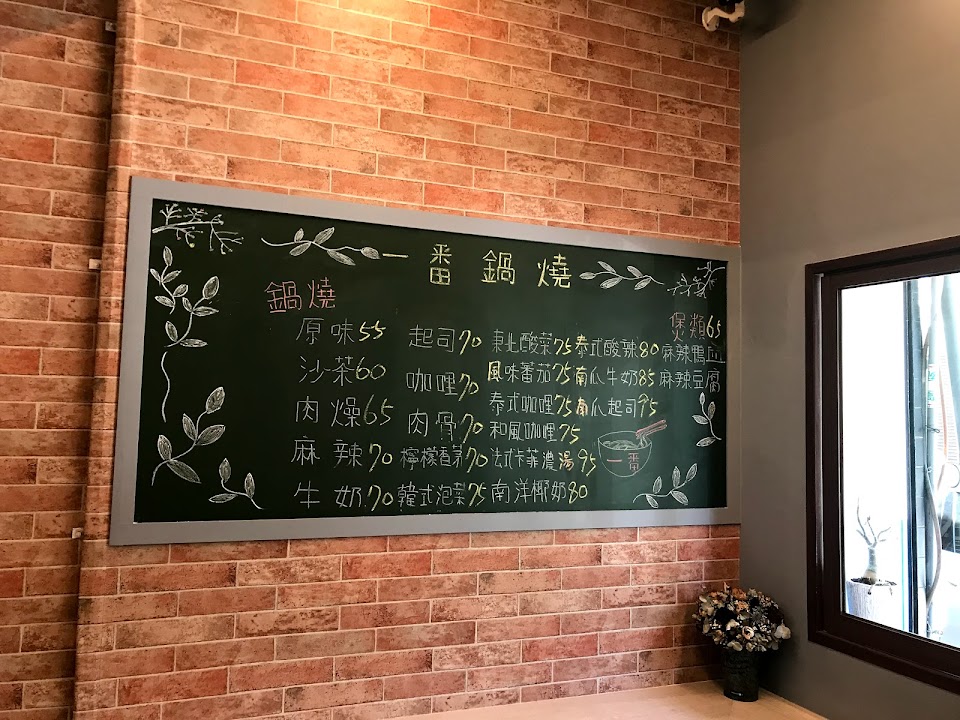 一番鍋燒
鍋燒
原味55
沙茶60
肉燥65
麻辣70
牛奶70
起司70
咖哩70
肉骨70
檸檬香茅70
韓式泡菜75
東北酸菜75
風味蕃茄75
泰式咖哩75
和風咖哩75
法式卡菲濃湯95
南洋椰奶80
泰式酸辣80
南瓜牛奶85
南瓜起司95
一番
煲類65
麻辣鴨血
麻辣豆腐